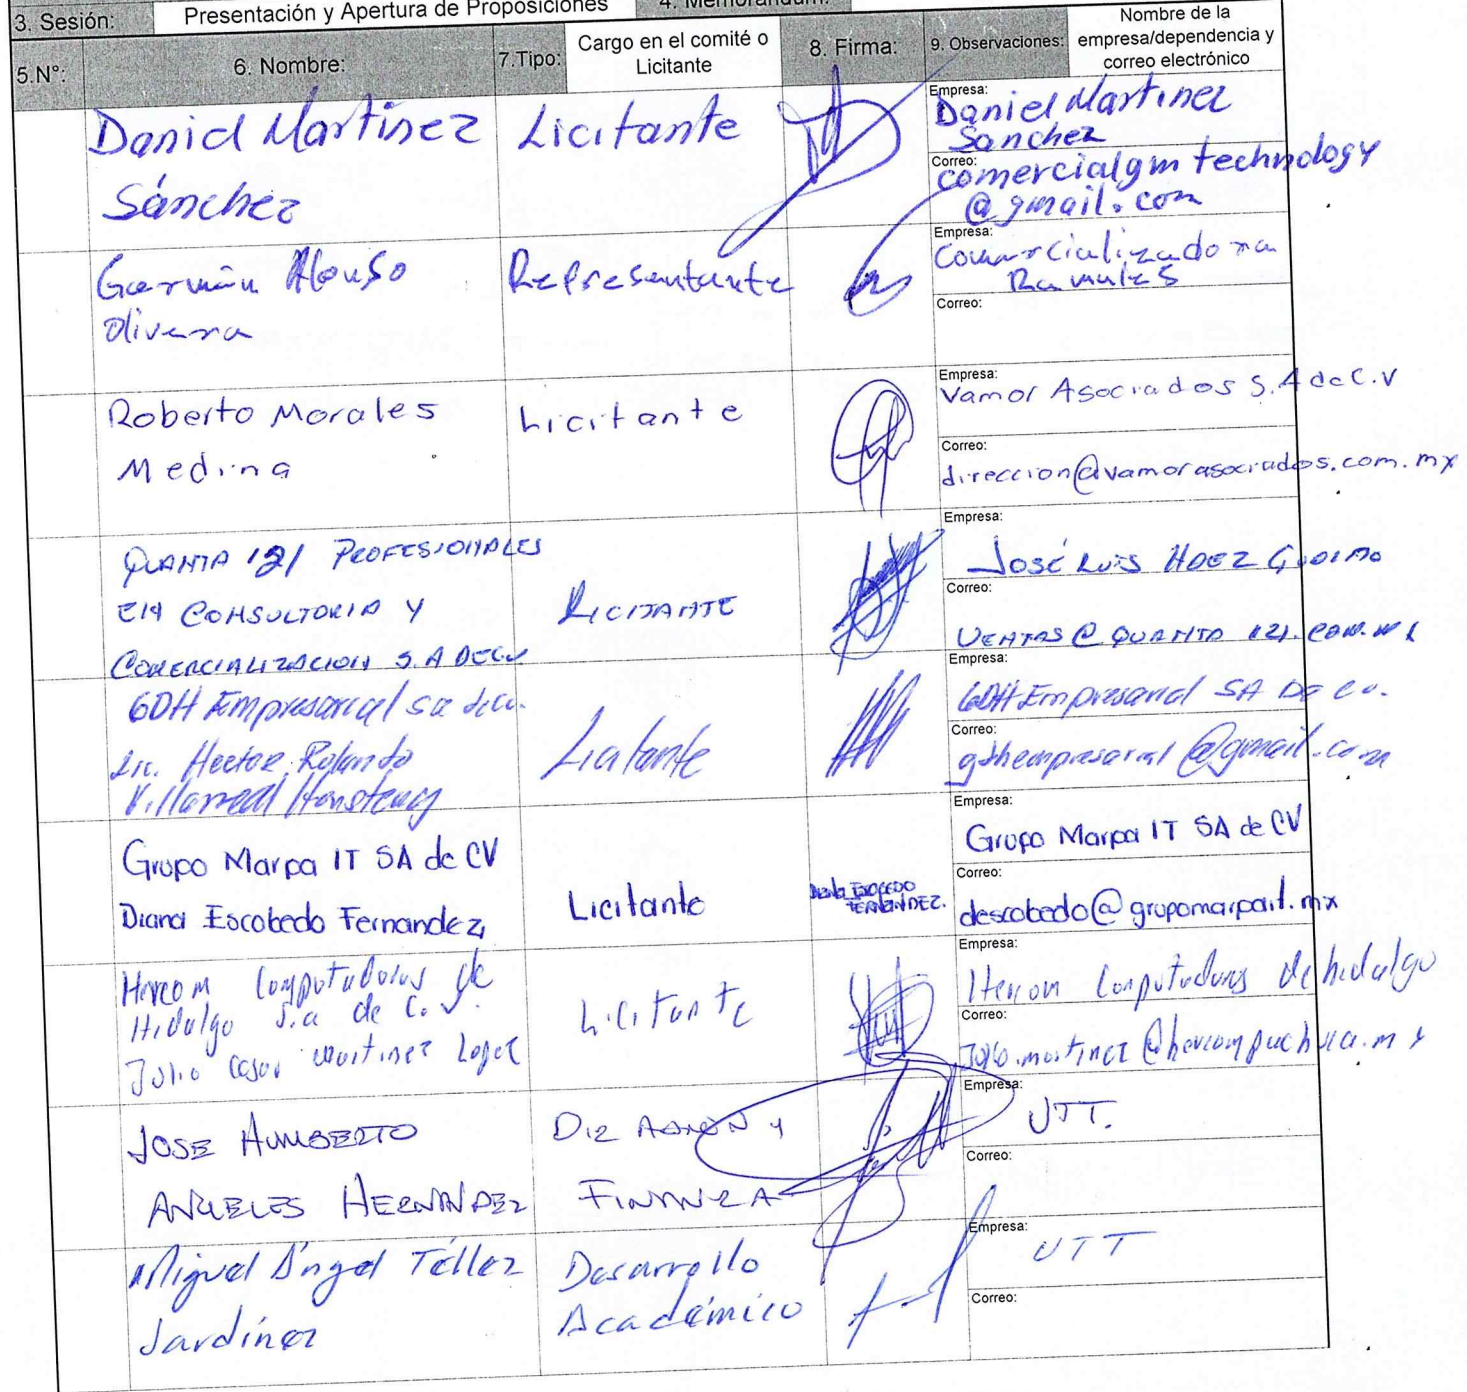 3. Sesión: Presentación y Apertura de Proposiciones 4. Memorándum:
5.N°: 6. Nombre: 7.Tipo: Cargo en el comité o Licitante 8. Firma: 9. Observaciones: Nombre de la empresa/dependencia y correo electrónico
Daniel Martinez Licitante
Sánchez
Empresa:
Daniel Martinez
Sanchez
Correo:
comercialgm technology
@gmail.com
Germán Alonso Representante
Olivera
Empresa:
Comercializadora
Ramules
Correo:
Roberto Morales Licitante
Medina
Empresa:
Vamor Asociados S.A de C.V
Correo:
direccion@vamorasociados.com.mx
QUANTA 121 PROFESIONALES
EN CONSULTORIA Y LICITANTE
COMERCIALIZACION S.A DE CV
Empresa:
José Luis HDEZ
Correo:
VENTAS@QUANTA121.COM.MX
GDH Empresarial sa de cv.
Lic. Hector Rolando Licitante
Villarreal
Empresa:
GDH Empresarial SA DE CV.
Correo:
gdhempresarial@gmail.com
Grupo Marpa IT SA de CV
Diana Escobedo Fernandez Licitante
Diana ESCOBEDO
FERNÁNDEZ.
Empresa:
Grupo Marpa IT SA de CV
Correo:
descobedo@grupomarpait.mx
Hercom Computadoras de
Hidalgo S.a de C.V. Licitante
Julio Cesar Martinez Lopez
Empresa:
Hercom Computadoras de hidalgo
Correo:
Julio.martinez@hercompachuca.mx
JOSE HUMBERTO DIR ADMÓN Y
ANGELES HERNANDEZ FINANZA
Empresa:
UTT.
Correo:
Miguel Ángel Téllez Desarrollo
Jardínez Académico
Empresa:
UTT
Correo: